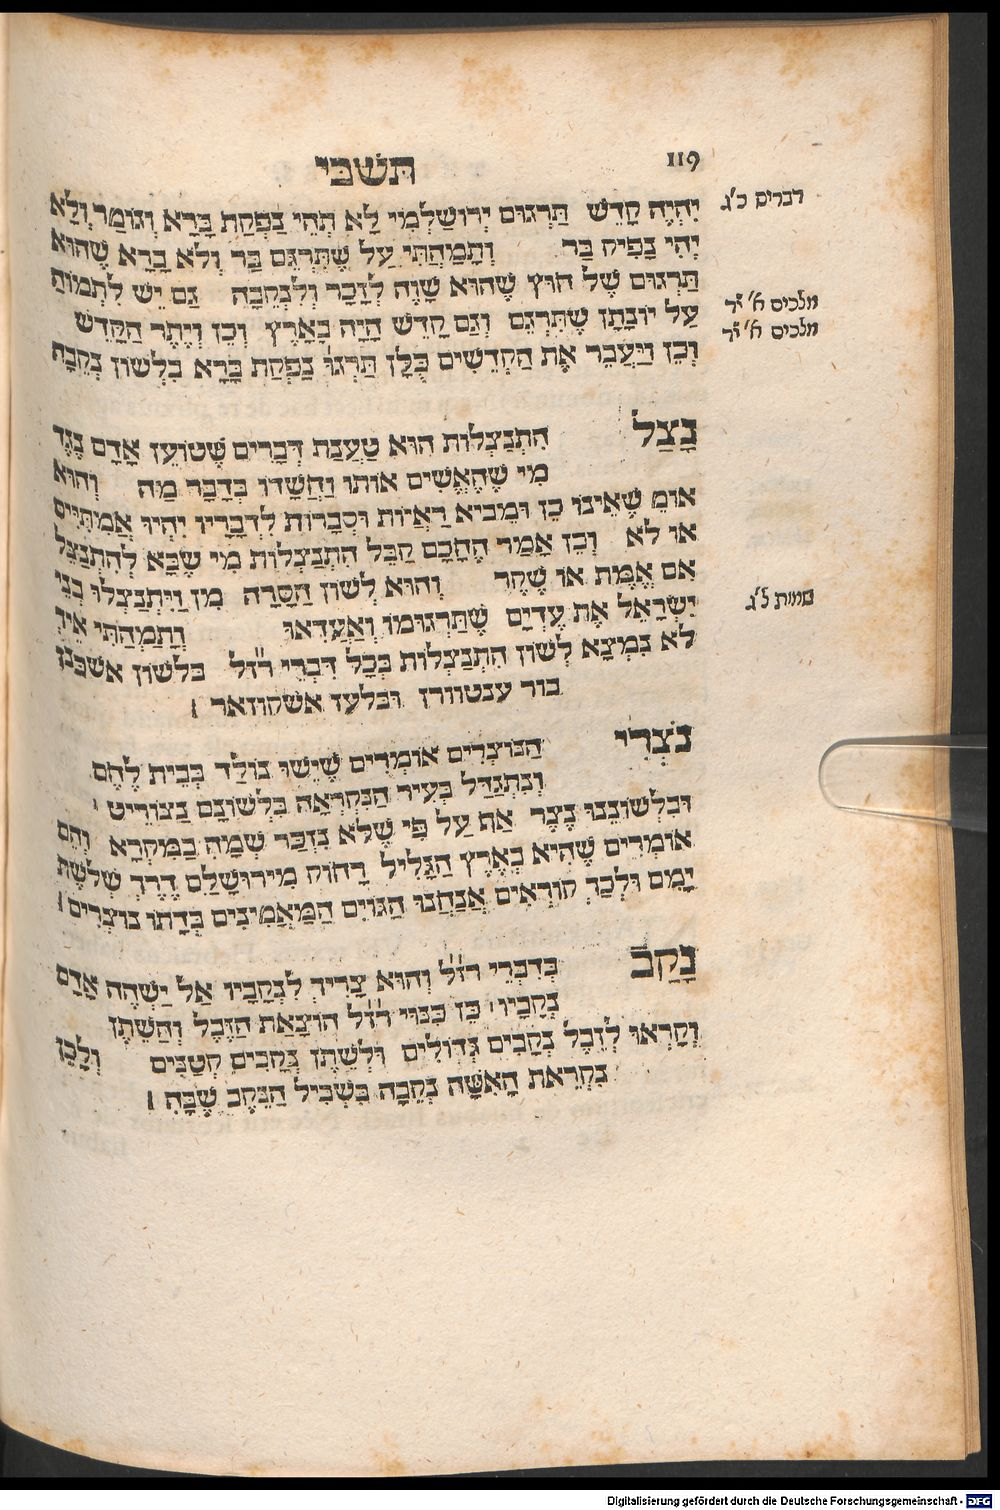 119
תשבי
יִהְיֶה קָדֵשׁ תַּרְגּוּם יְרוּשַׁלְמִי לָא תְהֵי נַפְקַת בָּרָא וְגוֹמַר וְלָא
דברים כ'ג
יְהֵי נַפִיק בַּר וְתָמַהְתִּי עַל שֶׁתִּרְגֵּם בַּר וְלֹא בָרָא שֶׁהוּא
תַּרְגּוּם שֶׁל חוּץ שֶׁהוּא שָׁוֶה לְזָכָר וְלִנְקֵבָה גַּם יֵשׁ לִתְמוֹהַּ
עַל יוֹנָתָן שֶׁתִּרְגֵּם וְגַם קָדֵשׁ הָיָה בָאָרֶץ וְכֵן וְיֶתֶר הַקָּדֵשׁ
מלכים א' י'ד
וְכֵן וַיַּעֲבֵר אֶת הַקְּדֵשִׁים כֻּלָּן תַּרְגּוּ נַפְקַת בָּרָא בִּלְשׁוֹן נְקֵבָה
מלכים א'
נָצַל
הִתְנַצְּלוּת הוּא טַעֲנַת דְּבָרִים שֶׁטּוֹעֵן אָדָם נֶגֶד
מִי שֶׁהֶאֱשִׁים אוֹתוֹ וַחֲשָׁדוֹ בְּדָבָר מַה וְהוּא
אוֹמֵ שֶׁאֵינוֹ כֵן וּמֵבִיא רְאָיוֹת וּסְבָרוֹת לִדְבָרָיו יִהְיוּ אֲמִתִּיִּים
אוֹ לֹא וְכֵן אָמַר הֶחָכָם קַבֵּל הִתְנַצְּלוּת מִי שֶׁבָּא לְהִתְנַצֵּל
אִם אֱמֶת אוֹ שֶׁקֶר וְהוּא לְשׁוֹן הֲסָרָה מִן וַיִּתְנַצְּלוּ בְנֵי
יִשְׂרָאֵל אֶת עֶדְיָם שֶׁתַּרְגּוּמוֹ וְאַעֲדִאוּ וְתָמַהְתִּי אֵיךְ
שמות ל'ג
לֹא נִמְצָא לְשׁוֹן הִתְנַצְּלוּת בְּכָל דִּבְרֵי רז״ל בלשון אשכנז
בור ענטוורן ובלעז אשקוזאר ׃
נֹצְרִי
הַנּוֹצְרִים אוֹמְרִים שֶׁיֵּשׁוּ נוֹלַד בְּבֵית לֶחֶם
וְנִתְגַּדַּל בְּעִיר הַנִּקְרָאָה בִּלְשׁוֹנָם נַצוֹרֵיט ׃
וּבִלְשׁוֹנֵנוּ נֶצֶר אַף עַל פִּי שֶׁלֹּא נִזְכַּר שְׁמָהּ בַּמִּקְרָא וְהֵם
אוֹמְרִים שֶׁהִיא בְאֶרֶץ הַגָּלִיל רָחוֹק מִירוּשָׁלַם דֶּרֶךְ שְׁלֹשֶׁת
יָמִים וּלְכָךְ קוֹרְאִים אֲנַחְנוּ הַגּוֹיִם הַמַּאֲמִינִים בְּדָתוֹ נוֹצְרִים ׃
נָקַב
בְּדִבְרֵי רז״ל וְהוּא צָרִיךְ לִנְקָבָיו אַל יַשְׁהֶה אָדָם
נְקָבָיו ׃ כֵּן כִּנּוּי רז״ל הוֹצָאַת הַזֶּבֶל וְהַשֶּׁתֶן
וְקָרְאוּ לְזֶבֶל נְקָבִים גְּדוֹלִים וּלְשֶׁתֶן נְקָבִים קְטַנִּים וְלָכֵן
נִקְרֵאת הָאִשָּׁה נְקֵבָה בִּשְׁבִיל הַנֶּקֶב שֶׁבָּהּ ׃
Digitalisierung gefördert durch die Deutsche Forschungsgemeinschaft - DFG